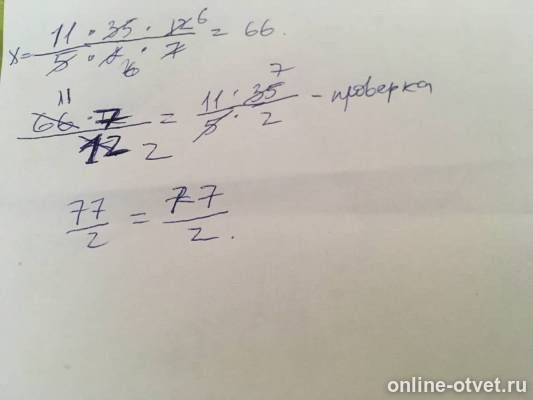 x = 11 · 35 · 12 6 / 5 · 2 · 7 = 66.
66 11 · 7 / 12 2 = 11 · 35 7 / 5 · 2 - проверка
77 / 2 = 77 / 2.
online-otvet.ru